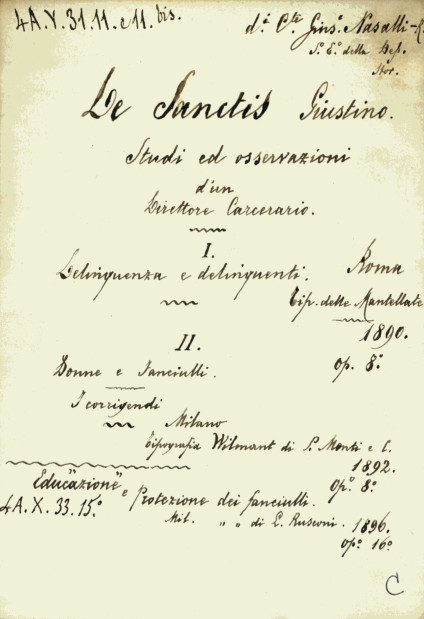 4A.Y.31.11. e 11. bis.
d.i C.te Gius.e Nasalli-R.
De Sanctis Giustino.
Studi ed osservazioni
d'un
Direttore Carcerario.
I.
Delinquenza e delinquenti.
Roma
Tip. delle Mantellate
1890.
op. 8.°
II.
Donne e Fanciulli.
I corrigendi
Milano
tipografia Wilmant di P. Monti e C.
1892.
Op.° 8.°
Educazione e Protezione dei fanciulli.
4A.X.33.15.°
Mil. " " di L. Rusconi. 1896.
op.° 16°
C